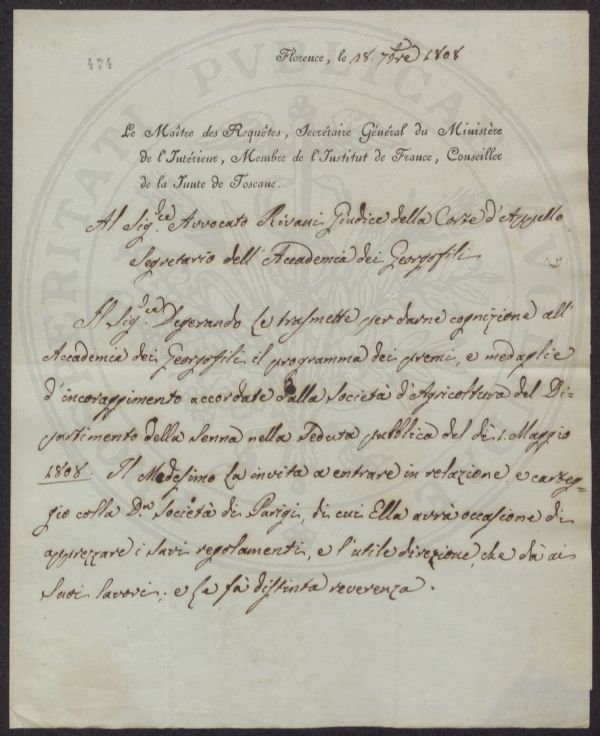 474
Florence, le 28. 7bre 1808
Le Maître des Requêtes, Secrétaire Général du Ministère
de l'Intérieur, Membre de l'Institut de France, Conseiller
de la Junte de Toscane.
Al Sigre Avvocato Rivani Giudice della Corte d'Appello
Segretario dell'Accademia dei Georgofili
Il Sigre Degerando Le trasmette per darne cognizione all'
Accademia dei Georgofili il programma dei premi, e medaglie
d'incoraggimento accordate dalla Società d'Agricoltura del Di-
partimento della Senna nella Seduta pubblica del dì 1. Maggio
1808. Il Medesimo La invita a entrare in relazione e carteg-
gio colla Da Società di Parigi, di cui Ella avrà occasione di
apprezzare i savi regolamenti, e l'utile direzione, che dà ai
suoi lavori; e Le fà distinta reverenza.